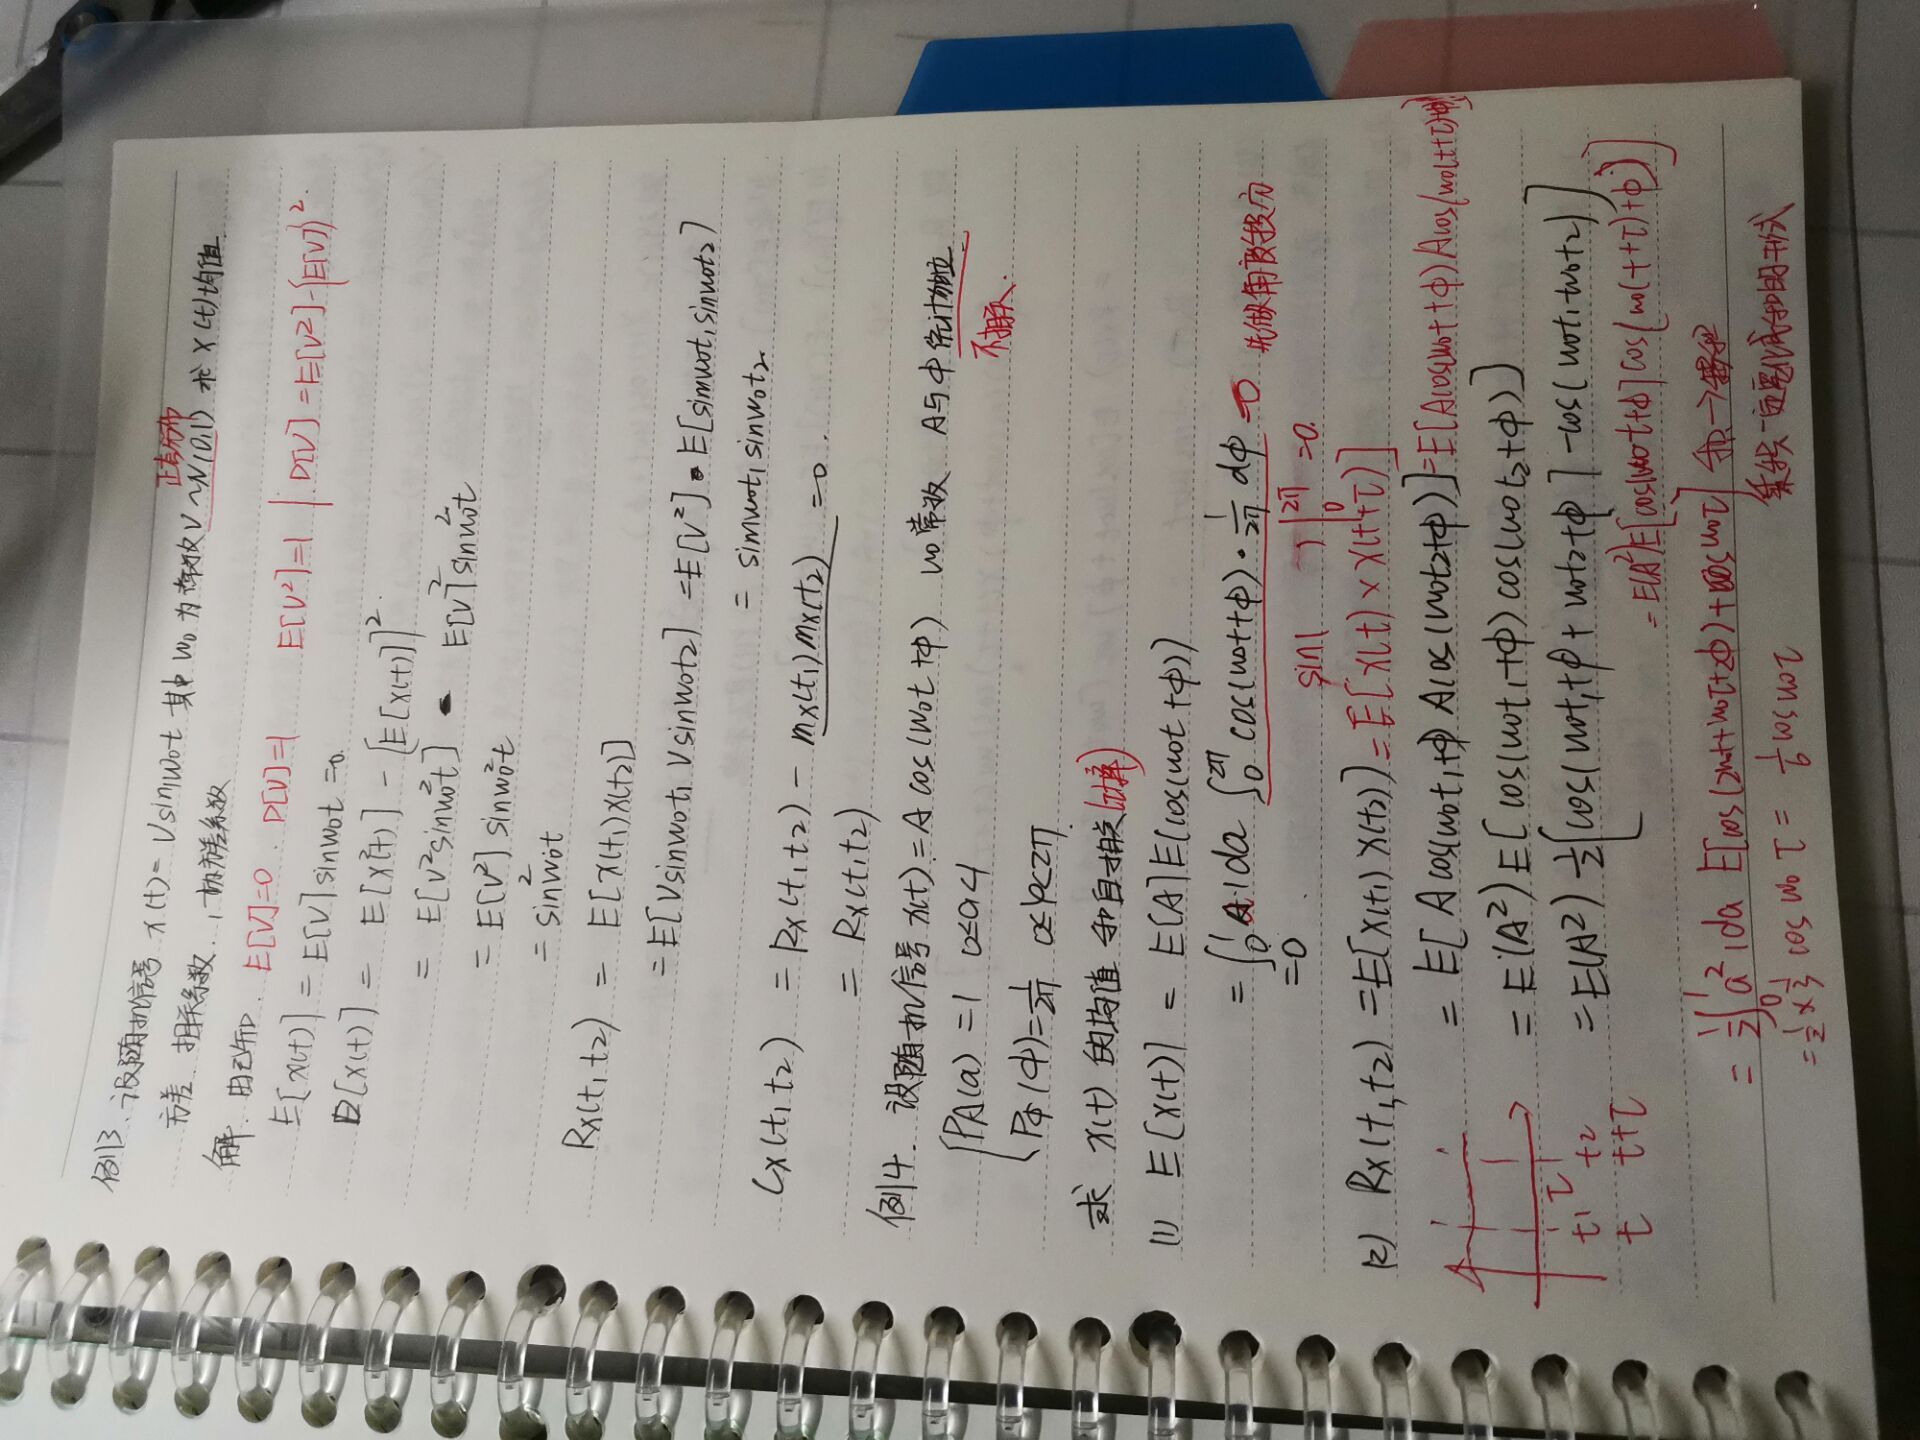 例3. 设随机信号 x(t) = Vsinw₀t 其中 w₀ 为常数 V ~ N(0,1) 求 X(t)均值
正态分布
方差 相关系数. , 协方差系数
解. 由已知. E[V]=0 . D[V]=1 E[V²]=1 | D[V] = E[V²]-[E[V]]².
E[X(t)] = E[V]sinw₀t =0.
D[X(t)] = E[X²(t)] - [E[X(t)]]².
= E[V²sinw₀²t] - E[V]²sin²w₀t
= E[V²] sinw₀²t
= sin²w₀t
Rx(t₁t₂) = E[X(t₁)X(t₂)]
= E[Vsinw₀t₁ Vsinw₀t₂] = E[V²]·E[sinw₀t₁sinw₀t₂]
= sinw₀t₁sinw₀t₂
Cx(t₁t₂) = Rx(t₁t₂) - mx(t₁)mx(t₂) =0.
= Rx(t₁t₂)
例4. 设随机信号 x(t) = A cos(w₀t+φ) w₀常数 A与φ统计独立
PA(a) = 1 0≤a<1 不相关.
Pφ(φ)=1/2π 0≤φ<2π
求 x(t) 的均值 和自相关(功率)
(1) E[X(t)] = E[A]E(cos(w₀t+φ))
= ∫₀¹ a·1da ∫₀²π cos(w₀t+φ)·1/2π dφ =0 先做角度积分
=0 sin( )|₀²π =0.
(2) Rx(t₁,t₂) = E[X(t₁)X(t₂)] = E[X(t)×X(t+τ)]
= E[Acos(w₀t₁+φ)Acos(w₀t₂+φ)] = E[Acos(w₀t+φ)Acos(w₀(t+τ)+φ)]
= E(A²)E[cos(w₀t₁+φ)cos(w₀t₂+φ)]
= E(A²) 1/2[cos(w₀t₁+φ+w₀t₂+φ] -cos(w₀t₁-w₀t₂)]
t₁ τ t₂
t t+τ
= E(A²)E[cos(w₀t+φ]cos(w₀(t+τ)+φ)]
= 1/2∫₀¹a²1da E[cos(2w₀t+w₀τ+2φ)+cosw₀τ] 积→
= 1/2×1/3 cosw₀τ = 1/6 cosw₀τ 乘积一定要化成和的形式